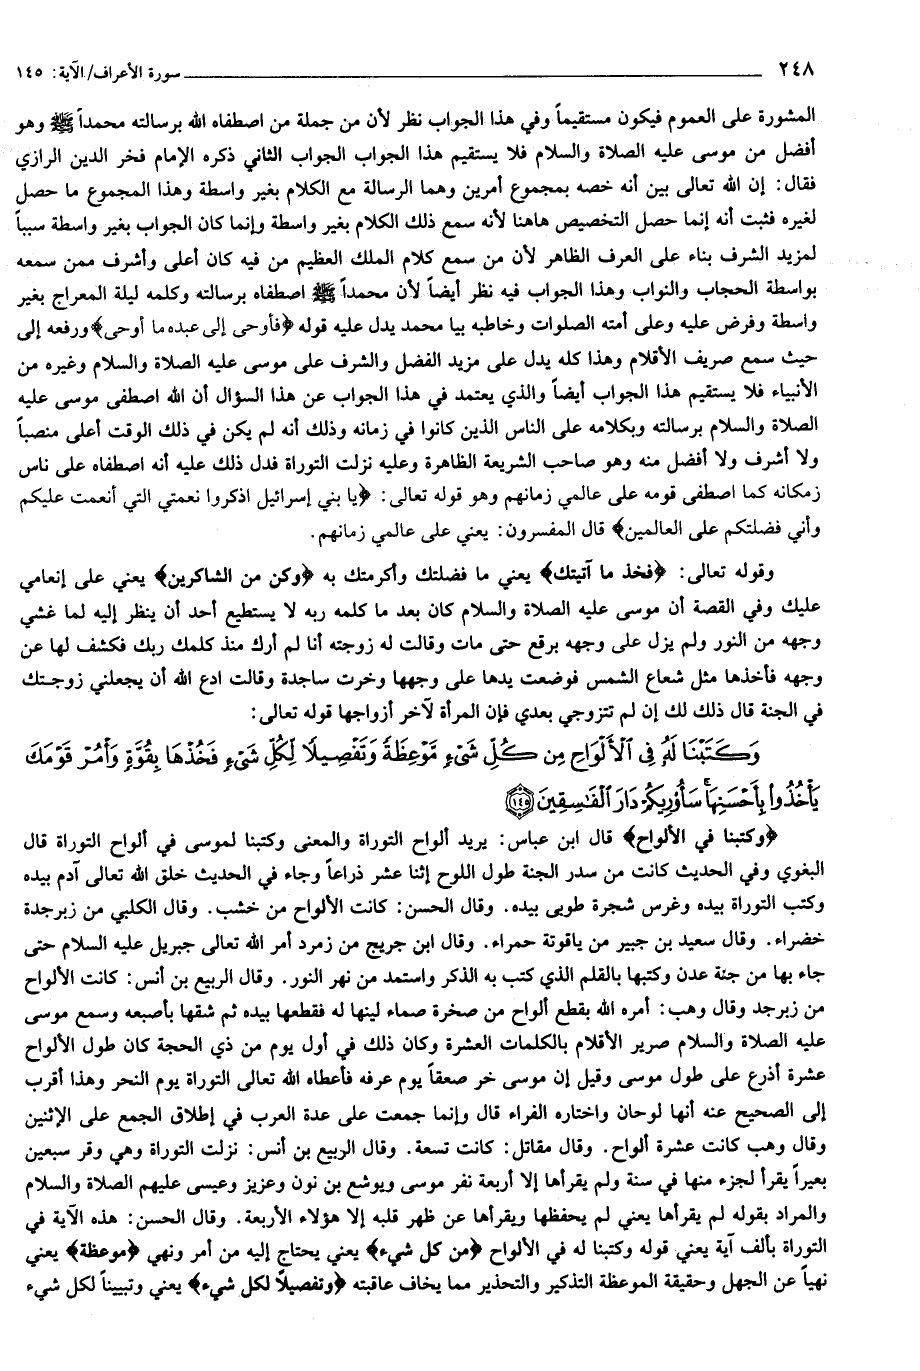 ٢٤٨ سورة الأعراف/الآية: ١٤٥
المشورة على العموم فيكون مستقيماً وفي هذا الجواب نظر لأن من جملة من اصطفاه الله برسالته محمداً ﷺ وهو
أفضل من موسى عليه الصلاة والسلام فلا يستقيم هذا الجواب الجواب الثاني ذكره الإمام فخر الدين الرازي
فقال: إن الله تعالى بين أنه خصه بمجموع أمرين وهما الرسالة مع الكلام بغير واسطة وهذا المجموع ما حصل
لغيره فثبت أنه إنما حصل التخصيص هاهنا لأنه سمع ذلك الكلام بغير واسطة وإنما كان الجواب بغير واسطة سبباً
لمزيد الشرف بناء على العرف الظاهر لأن من سمع كلام الملك العظيم من فيه كان أعلى وأشرف ممن سمعه
بواسطة الحجاب والنواب وهذا الجواب فيه نظر أيضاً لأن محمداً ﷺ اصطفاه برسالته وكلمه ليلة المعراج بغير
واسطة وفرض عليه وعلى أمته الصلوات وخاطبه بيا محمد يدل عليه قوله ﴿فأوحى إلى عبده ما أوحى﴾ ورفعه إلى
حيث سمع صريف الأقلام وهذا كله يدل على مزيد الفضل والشرف على موسى عليه الصلاة والسلام وغيره من
الأنبياء فلا يستقيم هذا الجواب أيضاً والذي يعتمد في هذا الجواب عن هذا السؤال أن الله اصطفى موسى عليه
الصلاة والسلام برسالته وبكلامه على الناس الذين كانوا في زمانه وذلك أنه لم يكن في ذلك الوقت أعلى منصباً
ولا أشرف ولا أفضل منه وهو صاحب الشريعة الظاهرة وعليه نزلت التوراة فدل ذلك عليه أنه اصطفاه على ناس
زمكانه كما اصطفى قومه على عالمي زمانهم وهو قوله تعالى: ﴿يا بني إسرائيل اذكروا نعمتي التي أنعمت عليكم
وأني فضلتكم على العالمين﴾ قال المفسرون: يعني على عالمي زمانهم.
وقوله تعالى: ﴿فخذ ما آتيتك﴾ يعني ما فضلتك وأكرمتك به ﴿وكن من الشاكرين﴾ يعني على إنعامي
عليك وفي القصة أن موسى عليه الصلاة والسلام كان بعد ما كلمه ربه لا يستطيع أحد أن ينظر إليه لما غشي
وجهه من النور ولم يزل على وجهه برقع حتى مات وقالت له زوجته أنا لم أرك منذ كلمك ربك فكشف لها عن
وجهه فأخذها مثل شعاع الشمس فوضعت يدها على وجهها وخرت ساجدة وقالت ادع الله أن يجعلني زوجتك
في الجنة قال ذلك لك إن لم تتزوجي بعدي فإن المرأة لآخر أزواجها قوله تعالى:
وَكَتَبْنَا لَهُ فِي الْأَلْوَاحِ مِن كُلِّ شَيْءٍ مَّوْعِظَةً وَتَفْصِيلًا لِّكُلِّ شَيْءٍ فَخُذْهَا بِقُوَّةٍ وَأْمُرْ قَوْمَكَ
يَأْخُذُوا بِأَحْسَنِهَا سَأُوْرِيكُمْ دَارَ الْفَاسِقِينَ ١٤٥
﴿وكتبنا في الألواح﴾ قال ابن عباس: يريد ألواح التوراة والمعنى وكتبنا لموسى في ألواح التوراة قال
البغوي وفي الحديث كانت من سدر الجنة طول اللوح إثنا عشر ذراعاً وجاء في الحديث خلق الله تعالى آدم بيده
وكتب التوراة بيده وغرس شجرة طوبى بيده. وقال الحسن: كانت الألواح من خشب. وقال الكلبي من زبرجدة
خضراء. وقال سعيد بن جبير من ياقوتة حمراء. وقال ابن جريج من زمرد أمر الله تعالى جبريل عليه السلام حتى
جاء بها من جنة عدن وكتبها بالقلم الذي كتب به الذكر واستمد من نهر النور. وقال الربيع بن أنس: كانت الألواح
من زبرجد وقال وهب: أمره الله بقطع ألواح من صخرة صماء لينها له فقطعها بيده ثم شقها بأصبعه وسمع موسى
عليه الصلاة والسلام صرير الأقلام بالكلمات العشرة وكان ذلك في أول يوم من ذي الحجة كان طول الألواح
عشرة أذرع على طول موسى وقيل إن موسى خر صعقاً يوم عرفه فأعطاه الله تعالى التوراة يوم النحر وهذا أقرب
إلى الصحيح عنه أنها لوحان واختاره الفراء قال وإنما جمعت على عدة العرب في إطلاق الجمع على الإثنين
وقال وهب كانت عشرة ألواح. وقال مقاتل: كانت تسعة. وقال الربيع بن أنس: نزلت التوراة وهي وقر سبعين
بعيراً يقرأ لجزء منها في سنة ولم يقرأها إلا أربعة نفر موسى ويوشع بن نون وعزيز وعيسى عليهم الصلاة والسلام
والمراد بقوله لم يقرأها يعني لم يحفظها ويقرأها عن ظهر قلبه إلا هؤلاء الأربعة. وقال الحسن: هذه الآية في
التوراة بألف آية يعني قوله وكتبنا له في الألواح ﴿من كل شيء﴾ يعني يحتاج إليه من أمر ونهي ﴿موعظة﴾ يعني
نهياً عن الجهل وحقيقة الموعظة التذكير والتحذير مما يخاف عاقبته ﴿وتفصيلاً لكل شيء﴾ يعني وتبييناً لكل شيء